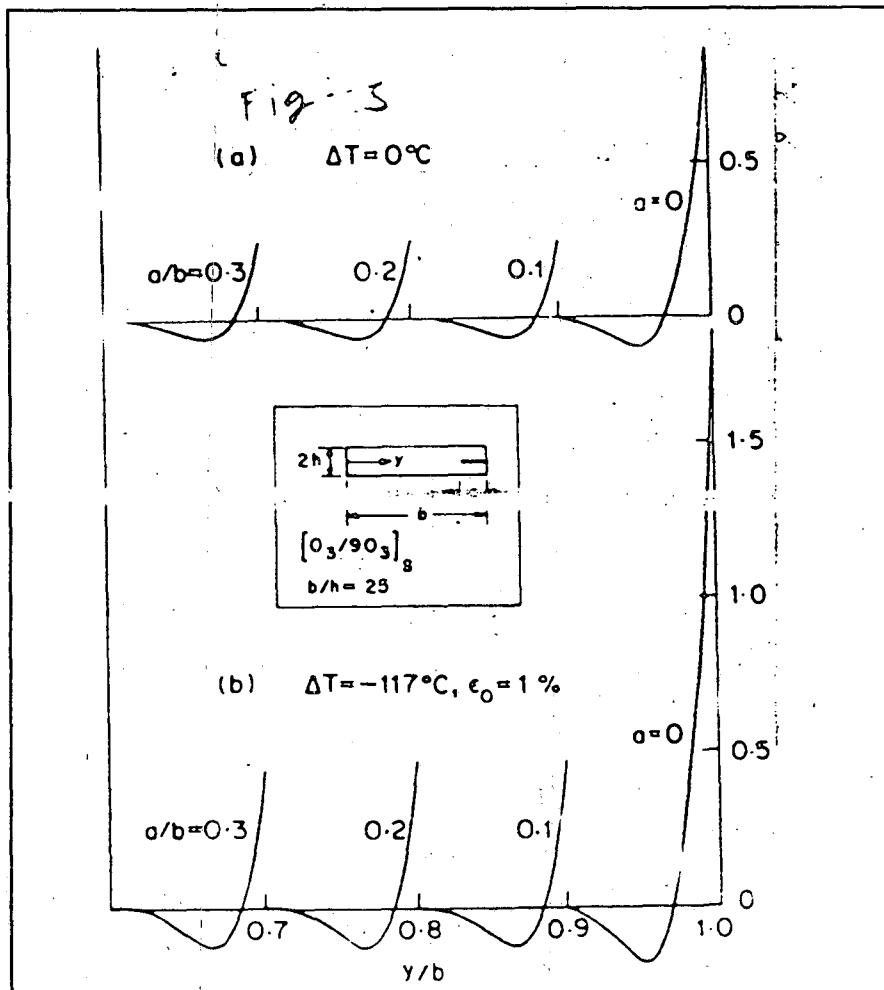 Fig - 5
(a) ΔT = 0°C
0.5
a=0
a/b=0.3 0.2 0.1
0
1.5
2h
y
b
[0₃/90₃]ₛ
b/h = 25
1.0
(b) ΔT = -117°C, ϵ₀ = 1 %
a=0
0.5
a/b=0.3 0.2 0.1
0
0.7 0.8 0.9 1.0
y/b